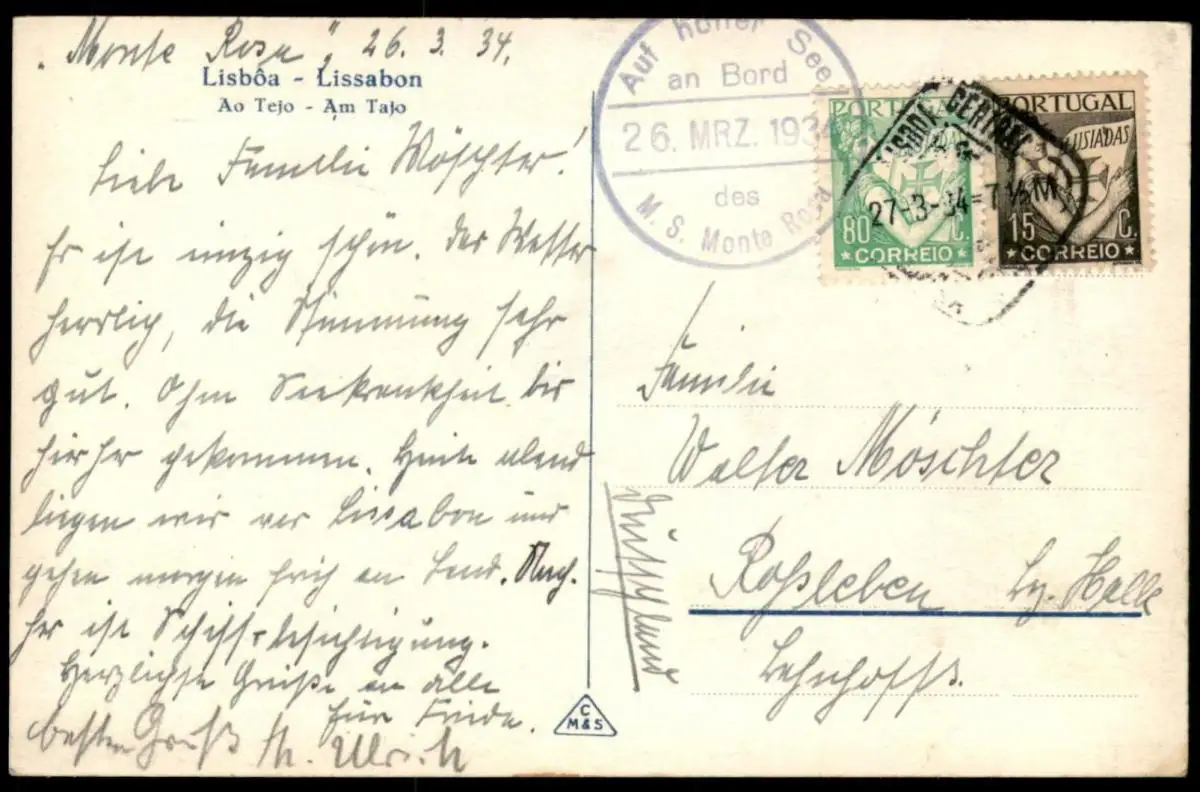 „Monte Rosa", 26. 3. 34.
Lisbôa - Lissabon
Ao Tejo - Am Tajo
Liebe Familie Möschter!
Es ist einzig schön. Das Wetter
herrlich, die Stimmung sehr
gut. Ohne Seekrankheit bis
hierher gekommen. Heute abend
liegen wir vor Lissabon und
gehen morgen früh an Land. Nach-
her ist Schiffsbesichtigung.
Herzlichste Grüße an alle
besten Gruß Th. Ulrich
Auf hoher See
an Bord
26. MRZ. 1934
des
M. S. Monte Rosa
PORTUGAL
LUSIADAS
80 C.
CORREIO
PORTUGAL
LUSIADAS
15 C.
CORREIO
LISBOA CENTRAL
27-3-34=7½M
Familie
Walter Möschter
Roßleben Bz. Halle
Bahnhofstr.
Deutschland
C
M&S